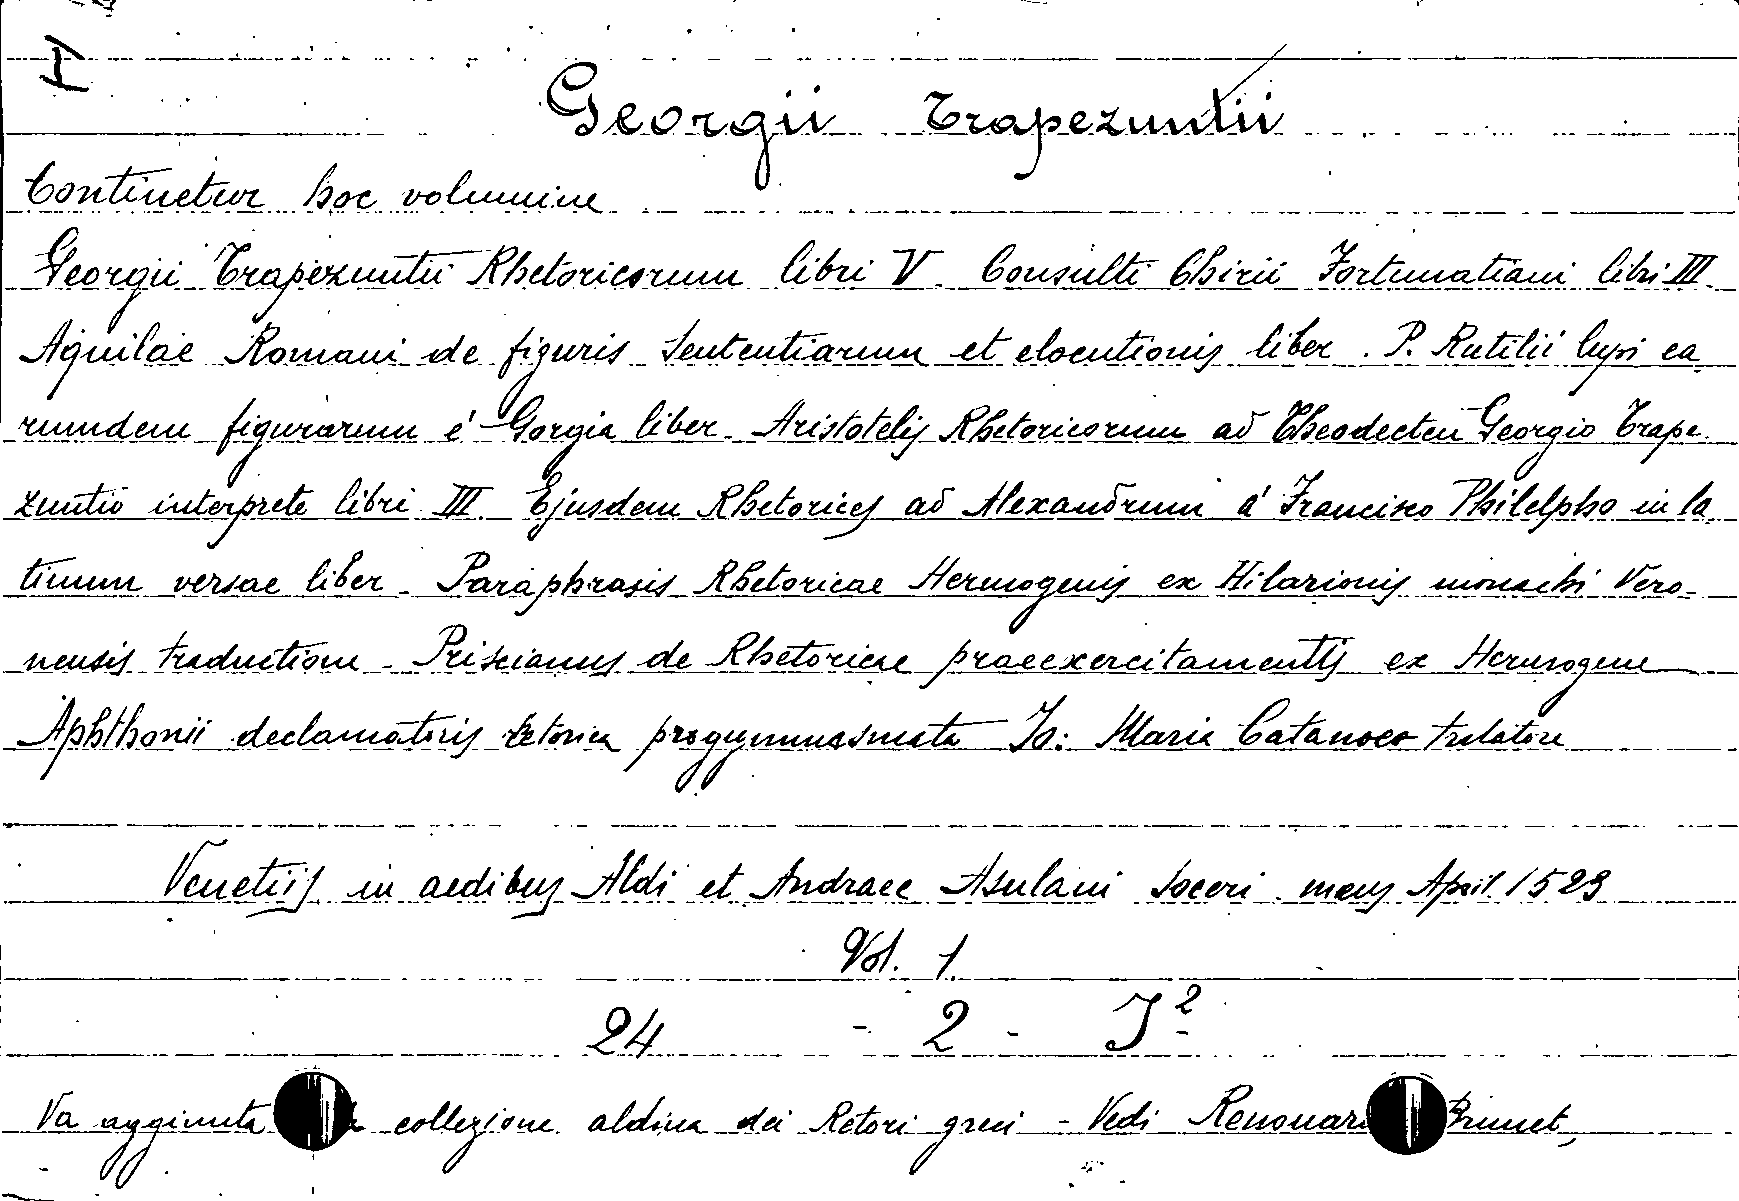 I
Georgii Trapezuntii
Continetur hoc volumine
Georgii Trapezuntii Rhetoricorum libri V. Consulti Chirii Fortunatiani libri III.
Aquilae Romani de figuris sententiarum et elocutionis liber. P. Rutilii lupi ea
rumdem figurarum é Gorgia liber - Aristotelis Rhetoricorum ad Theodecten Georgio Trape
zuntio interprete libri III. Ejusdem Rhetorices ad Alexandrum á Francisco Philelpho in la
tinum versae liber - Paraphrasis Rhetoricae Hermogenis ex Hilarionis monachi Vero-
nensis traductione - Priscianus de Rhetoricae praeexercitamentis ex Hermogene
Aphthonii declamatoris retorica progymnasmata Io: Maria Catanoeo trslatore
Venetiis in aedibus Aldi et Andraee Asulani soceri mens April 1523
Vol. 1.
24 - 2 - J²
Va aggiunta collezione aldina dei Retori greci - Vedi Renouar Brunet,